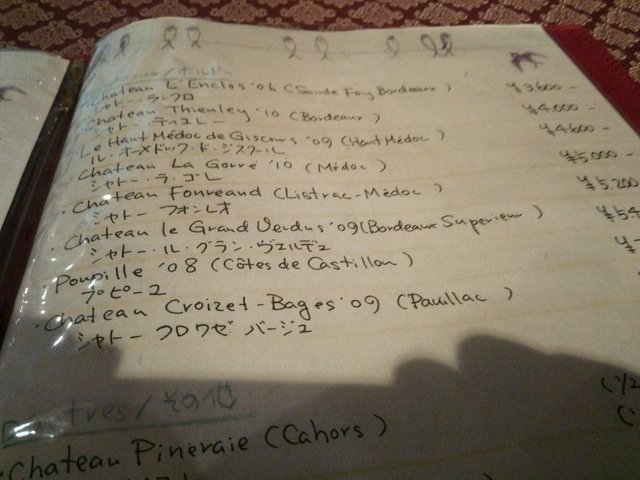 Bordeaux / ボルドー
Chateau L'Enclos '06 (Sainte Foy Bordeaux) ¥3600 -
シャトー ランクロ
Chateau Thieuley '10 (Bordeaux) ¥4000 -
シャトー ティユレー
Le Haut Médoc de Giscours '09 (Haut Médoc) ¥4600 -
ル・オーメドック・ド・ジスクール
Chateau La Gorre '10 (Médoc) ¥5.000 -
シャトー・ラ・ゴレ
・Chateau Fonreaud (Listrac-Médoc) ¥5.200
シャトー フォンレオ
・Chateau le Grand Verdus '09 (Bordeaux Superieur) ¥54
シャトー・ル・グラン・ヴェルデュ ¥
・Poupille '08 (Côtes de Castillon)
プピーユ
・Chateau Croizet-Bages '09 (Pauillac)
シャトー クロワゼ バージュ
D'autres / その他 (1/2
・Chateau Pineraie (Cahors) (